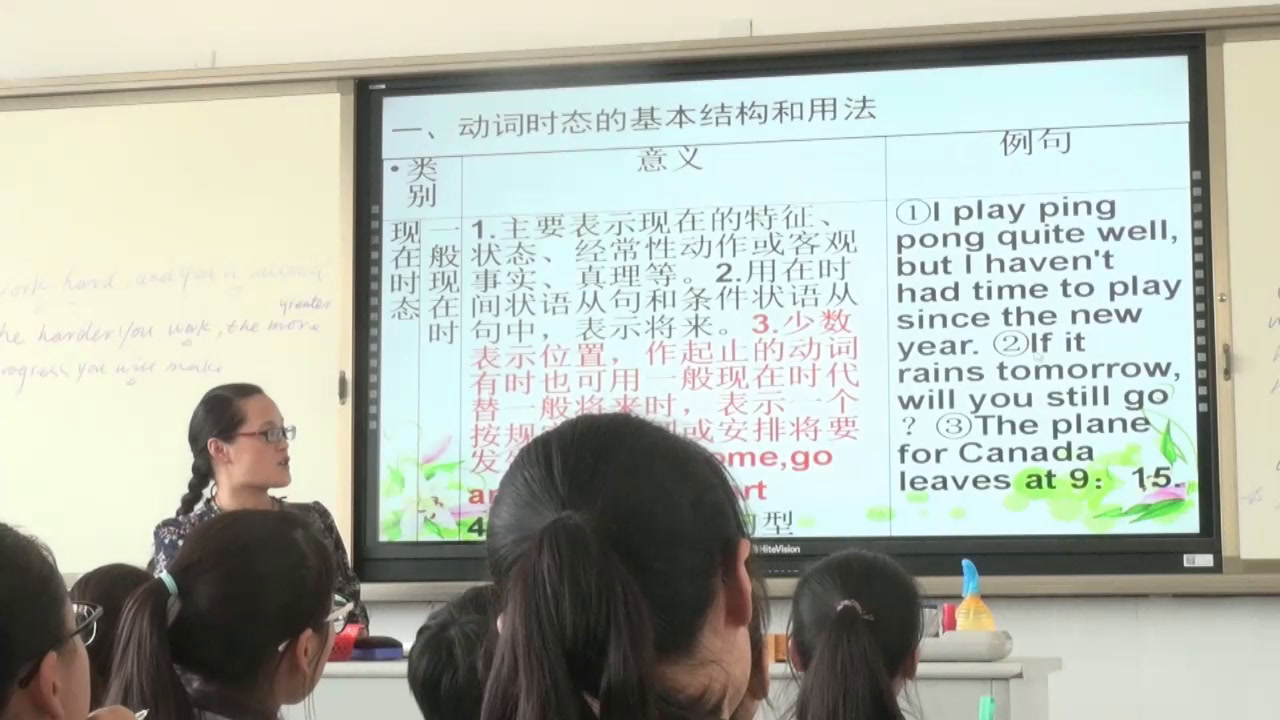 一、动词时态的基本结构和用法
• 类别
意义
例句
现在时态
一般现在时
1.主要表示现在的特征、
状态、经常性动作或客观
事实、真理等。2.用在时
间状语从句和条件状语从
句中，表示将来。3.少数
表示位置，作起止的动词
有时也可用一般现在时代
替一般将来时，表示一个
按规 或安排将要
发 ome,go
ar rt
4 句型
①I play ping
pong quite well,
but I haven't
had time to play
since the new
year. ②If it
rains tomorrow,
will you still go
？ ③The plane
for Canada
leaves at 9：15.
work hard and you
greater
he harder you work, the more
rogress you will make
HiteVision